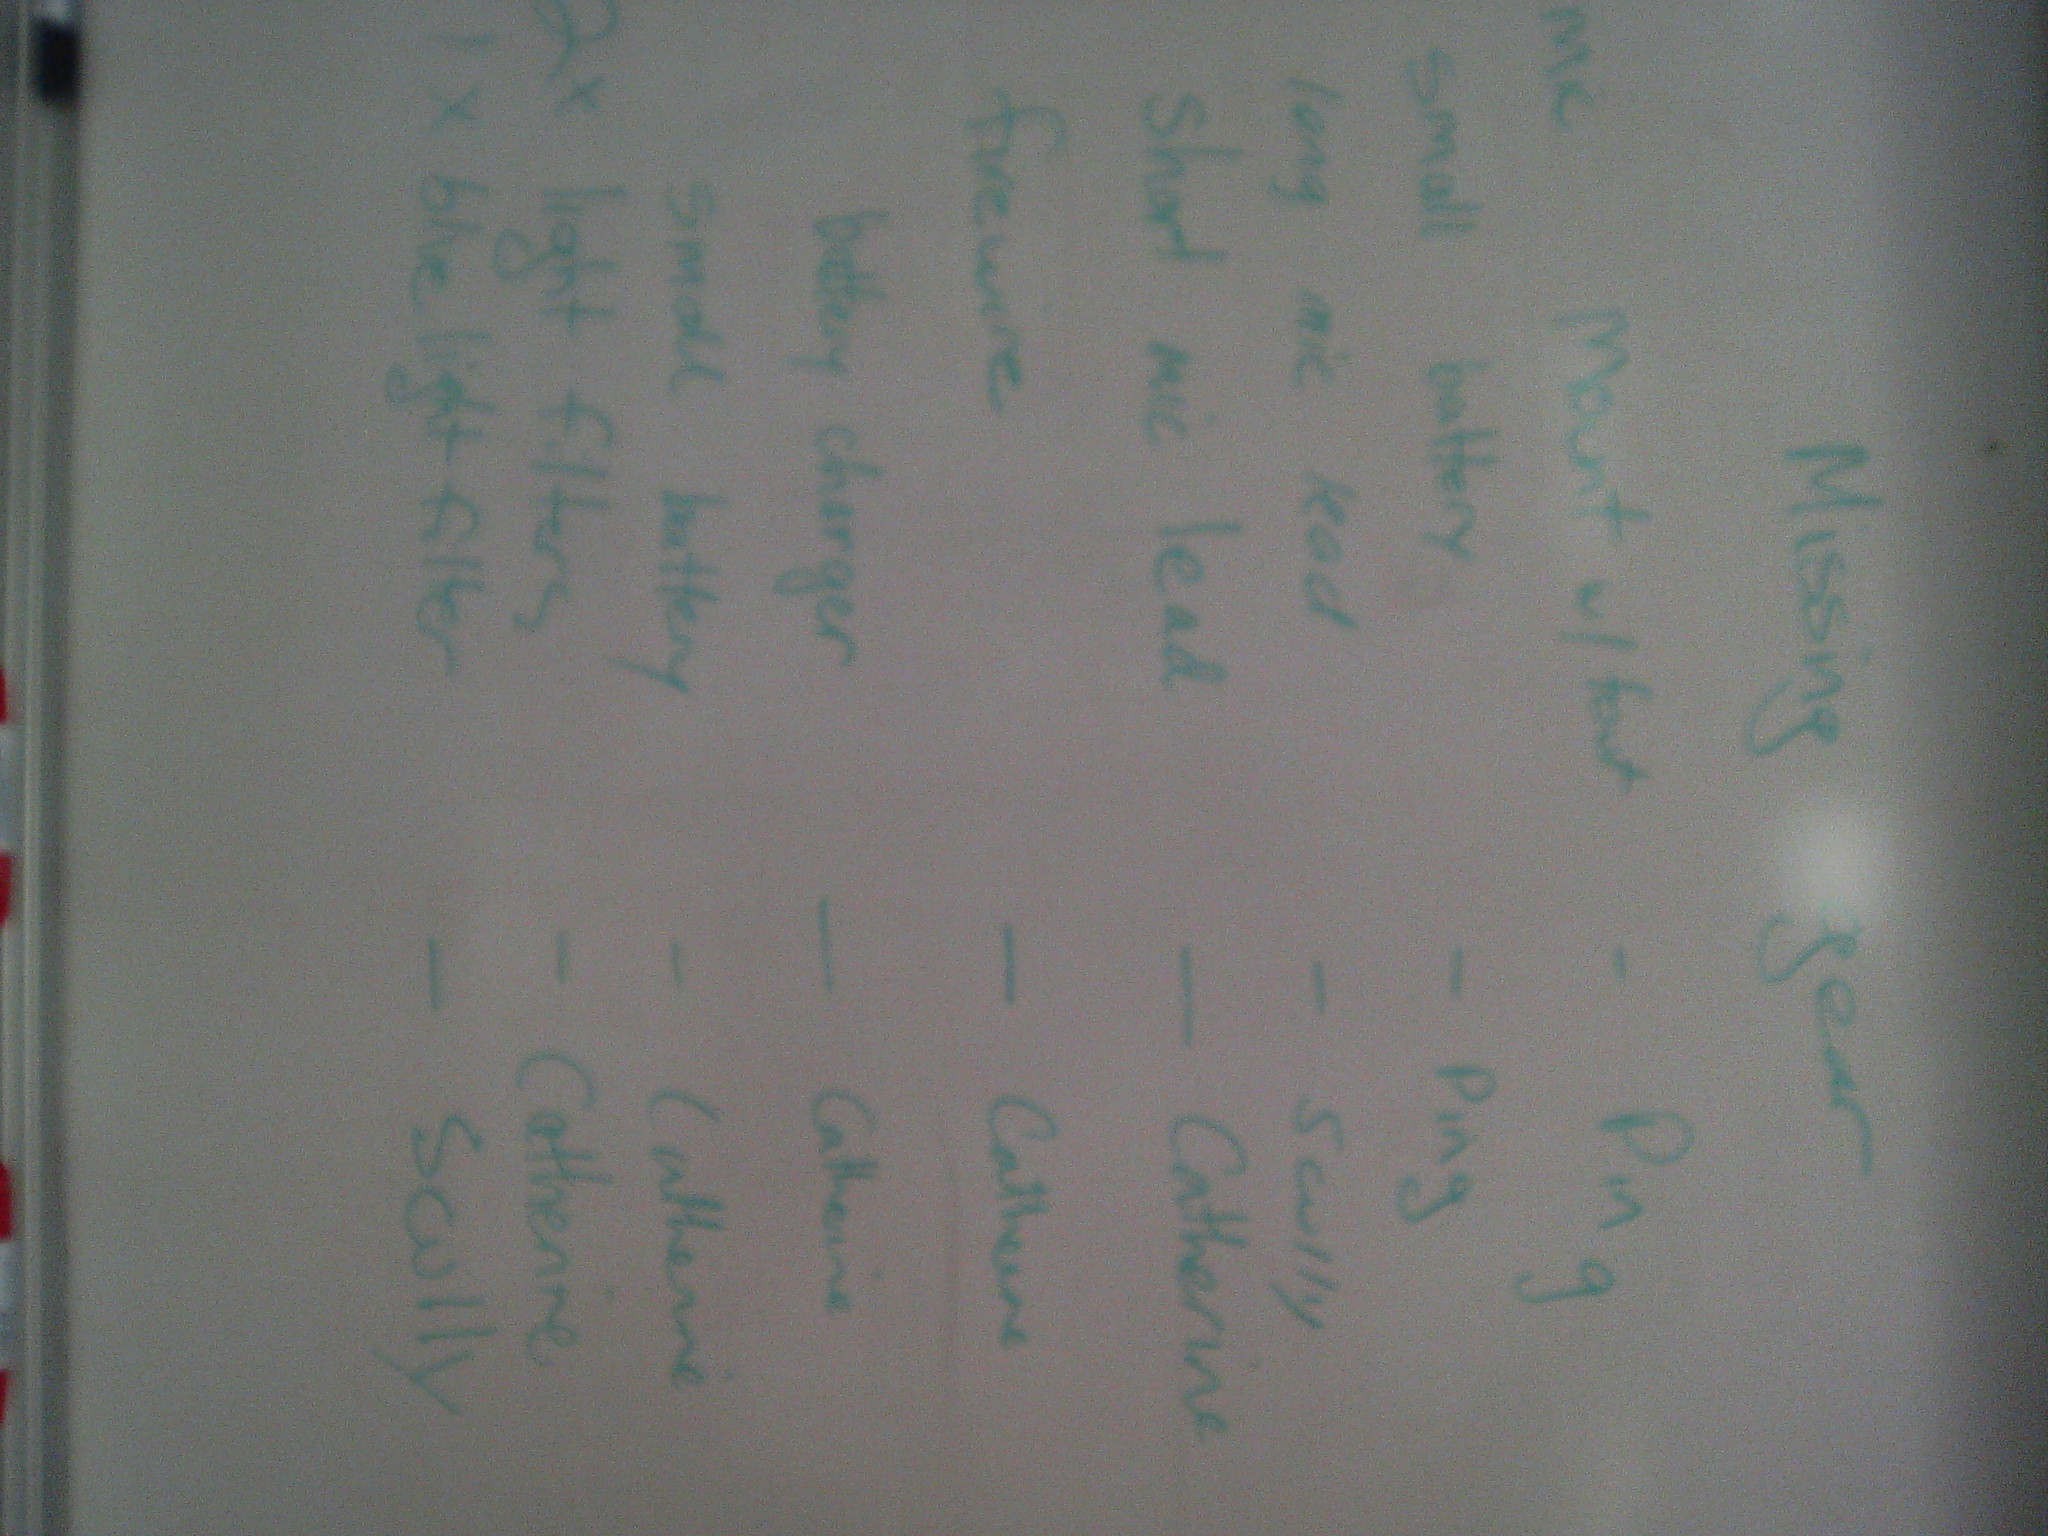 Missing gear
Mount w/ - Ping
small battery - Ping
long mic lead - Scully
Short mic lead - Catherine
firewire - Catherine
battery charger - Catherine
small battery - Catherine
2x light filters - Catherine
1 x blue light filter - Scully